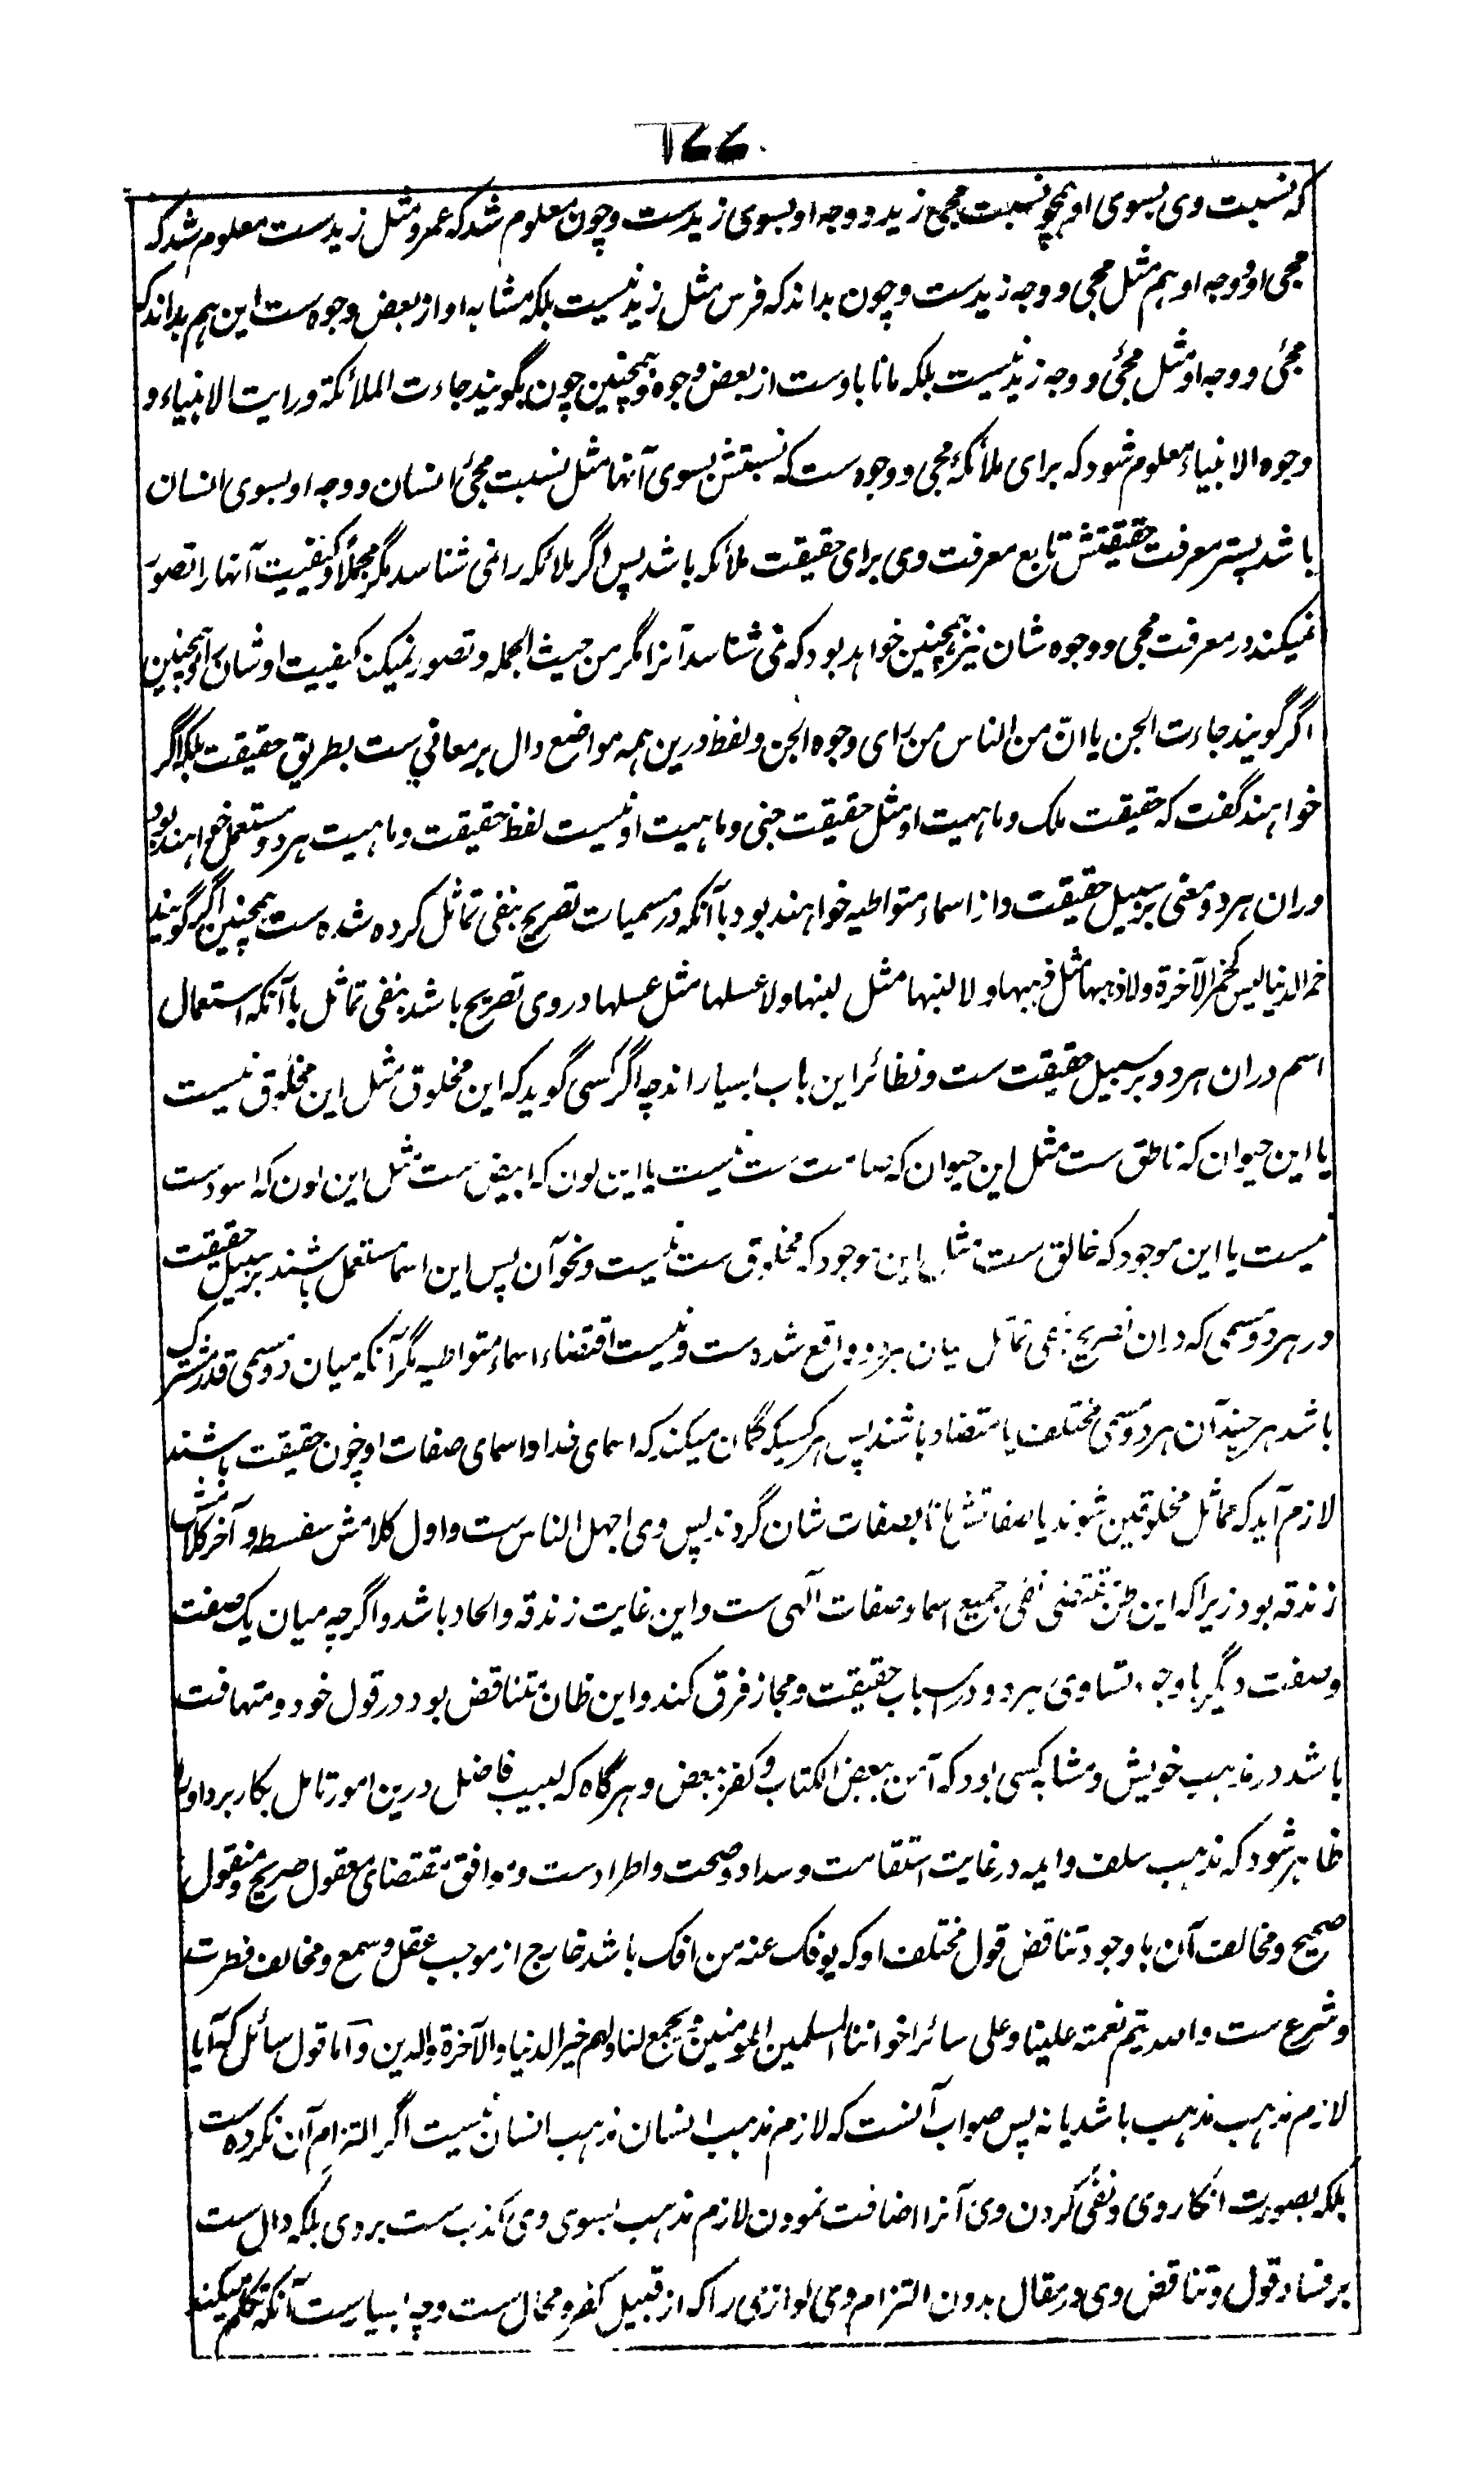 ۱۷۷
که نسبت وی بسوی او همچو نسبت مجئ زید و وجه او بسوی زیدست و چون معلوم شد که عمرو مثل زیدست معلوم شد که
مجی او و وجه او هم مثل مجی و وجه زیدست و چون بداند که فرس مثل زید نیست بلکه مشابه او از بعض وجوه ست این هم بداند که
مجئ و وجه او مثل مجئ و وجه زید نیست بلکه مانا باوست از بعض وجوه و همچنین چون بگویند جاءت الملائکة و رایت الانبیاء و
وجوه الانبیاء معلوم شود که برای ملائکه مجی و وجوه ست که نسبتش بسوی آنها مثل نسبت مجئ انسان و وجه او بسوی انسان
باشد پستر معرفت حقیقتش تابع معرفت وی برای حقیقت ملائکه باشد پس اگر ملائکه را نمی شناسد مگر مجملاً و کیفیت آنها را تصور
نمیکند در معرفت مجی و وجوه شان نیز همچنین خواهد بود که نمی شناسد آنرا مگر من حیث الجمله و تصور نمیکند کیفیت اوشان را و همچنین
اگر گویند جاءت الجن یا ان من الناس من رای وجوه الجن و لفظ درین همه مواضع دال بر معانی ست بطریق حقیقت بلکه اگر
خواهند گفت که حقیقت ملک و ماهیت او مثل حقیقت جنی و ماهیت او نیست لفظ حقیقت و ماهیت هر دو مستعمل خواهند بود
دران هر دو معنی بر سبیل حقیقت و از اسماء متواطیه خواهند بود با آنکه در مسمیات تصریح بنفی تماثل کرده شده ست همچنین اگر گویند
خمر الدنیا لیس کخمر الآخرة ولا ذهبها مثل ذهبها ولا لبنها مثل لبنها ولا عسلها مثل عسلها در وی تصریح باشد بنفی تماثل با آنکه استعمال
اسم دران هر دو بر سبیل حقیقت ست و نظائر این باب بسیار اند چه اگر کسی گوید که این مخلوق مثل این مخلوق نیست
یا این حیوان که ناطق ست مثل این حیوان که صامت ست نیست یا این لون که ابیض ست مثل این لون که اسودست
نیست یا این موجود که خالق ست مثل این موجود که مخلوق ست نیست و نحو آن پس این اسما مستعمل باشند بر سبیل حقیقت
در هر دو مسمی که دران تصریح بنفی تماثل میان هر دو واقع شده ست و نیست اقتضاء اسماء متواطیه مگر آنکه میان دو مسمی قدر مشترک
باشد هر چند آن هر دو مسمی مختلف یا متضاد باشند پس هر کسیکه گمان میکند که اسمای خدا و اسمای صفات او چون حقیقت باشند
لازم آید که مماثل مخلوقین شوند یا صفاتش مماثل بصفات شان گردند پس وی اجهل الناس ست و اول کلامش سفسطه و آخر کلامش
زندقه بود زیرا که این ظن مقتضی نفی جمیع اسما و صفات الهی ست و این غایت زندقه و الحاد باشد و اگر چه میان یک صفت
و صفت دیگر باوجود تساوی هر دو در اسباب حقیقت و مجاز فرق کند و این ظان متناقض بود در قول خود و متهافت
باشد در مذهب خویش و مشابه کسی بود که آمن ببعض الکتاب و کفر ببعض و هر گاه که لبیب فاضل درین امور تامل بکار برد او را
ظاهر شود که مذهب سلف و ایمه در غایت استقامت و سداد و صحت و اطرادست و موافق مقتضای معقول صریح و منقول
صحیح و مخالف آن باوجود تناقض قول مختلف او که یوفک عنه من افک باشد خارج از موجب عقل و سمع و مخالف فطرت
و شرع ست والله یتم نعمته علینا وعلی سائر اخواننا المسلمین المومنین و یجمع لنا ولهم خیر الدنیا والآخرة والدین و اما قول سائل که آیا
لازم مذهب مذهب باشد یا نه پس صواب آنست که لازم مذهب انسان مذهب انسان نیست اگر التزام آن نکرده ست
بلکه بصورت انکار وی و نفی کردن وی آنرا اضافت نمودن لازم مذهب بسوی وی کذب ست بر وی بلکه دال ست
بر فساد قول و تناقض وی در مقال بدون التزام وی لوازمی را که از قبیل کفر و محال ست و چه بسیاست آنکه تکلم میکند